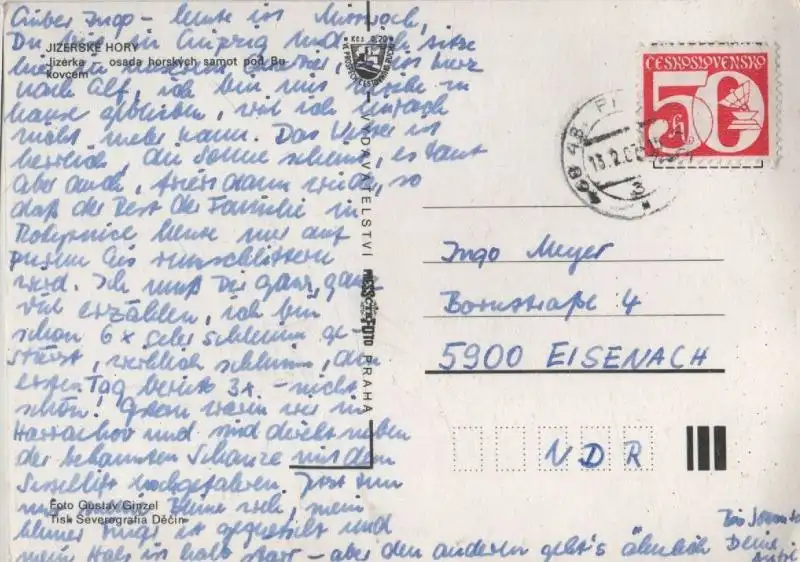 Lieber Ingo – heute ist Mittwoch,
Du bist in Leipzig und ich sitze
nach Alf, ich bin
hause geblieben, weil ich einfach
nicht mehr kann. Das Wetter ist
herrlich, die Sonne scheint, es taut
aber auch, friert dann wieder, so
daß der Rest der Familie in
Rokytnice heute nur auf
purem Eis runschlittern
wird. Ich muß Dir ganz, ganz
viel erzählen, ich bin
schon 6 x sehr schlimm ge-
stürzt, wirklich schlimm, den
ersten Tag bereits 3x. – nicht
schön! Gestern waren wir in
Harrachov und sind direkt neben
der bekannten Schanze mit dem
Sessellift hochgefahren. Jetzt tun
mir meine Beine weh, mein
kleiner Finger ist gequetscht und
mein Hals ist halb starr – aber den anderen geht's ähnlich
Bis Sonntag
Deine
JIZERSKÉ HORY
Jizerka osada horských samot pod Bu-
kovcem
Foto Gustav Ginzel
Tisk Severografia Děčín
Kčs 0,70
VYDAVATELSTVÍ
PRESSFOTO
PRAHA
ČESKOSLOVENSKO
50 h
468 48
3
Ingo Meyer
Bornstraße 4
5900 EISENACH
NDR